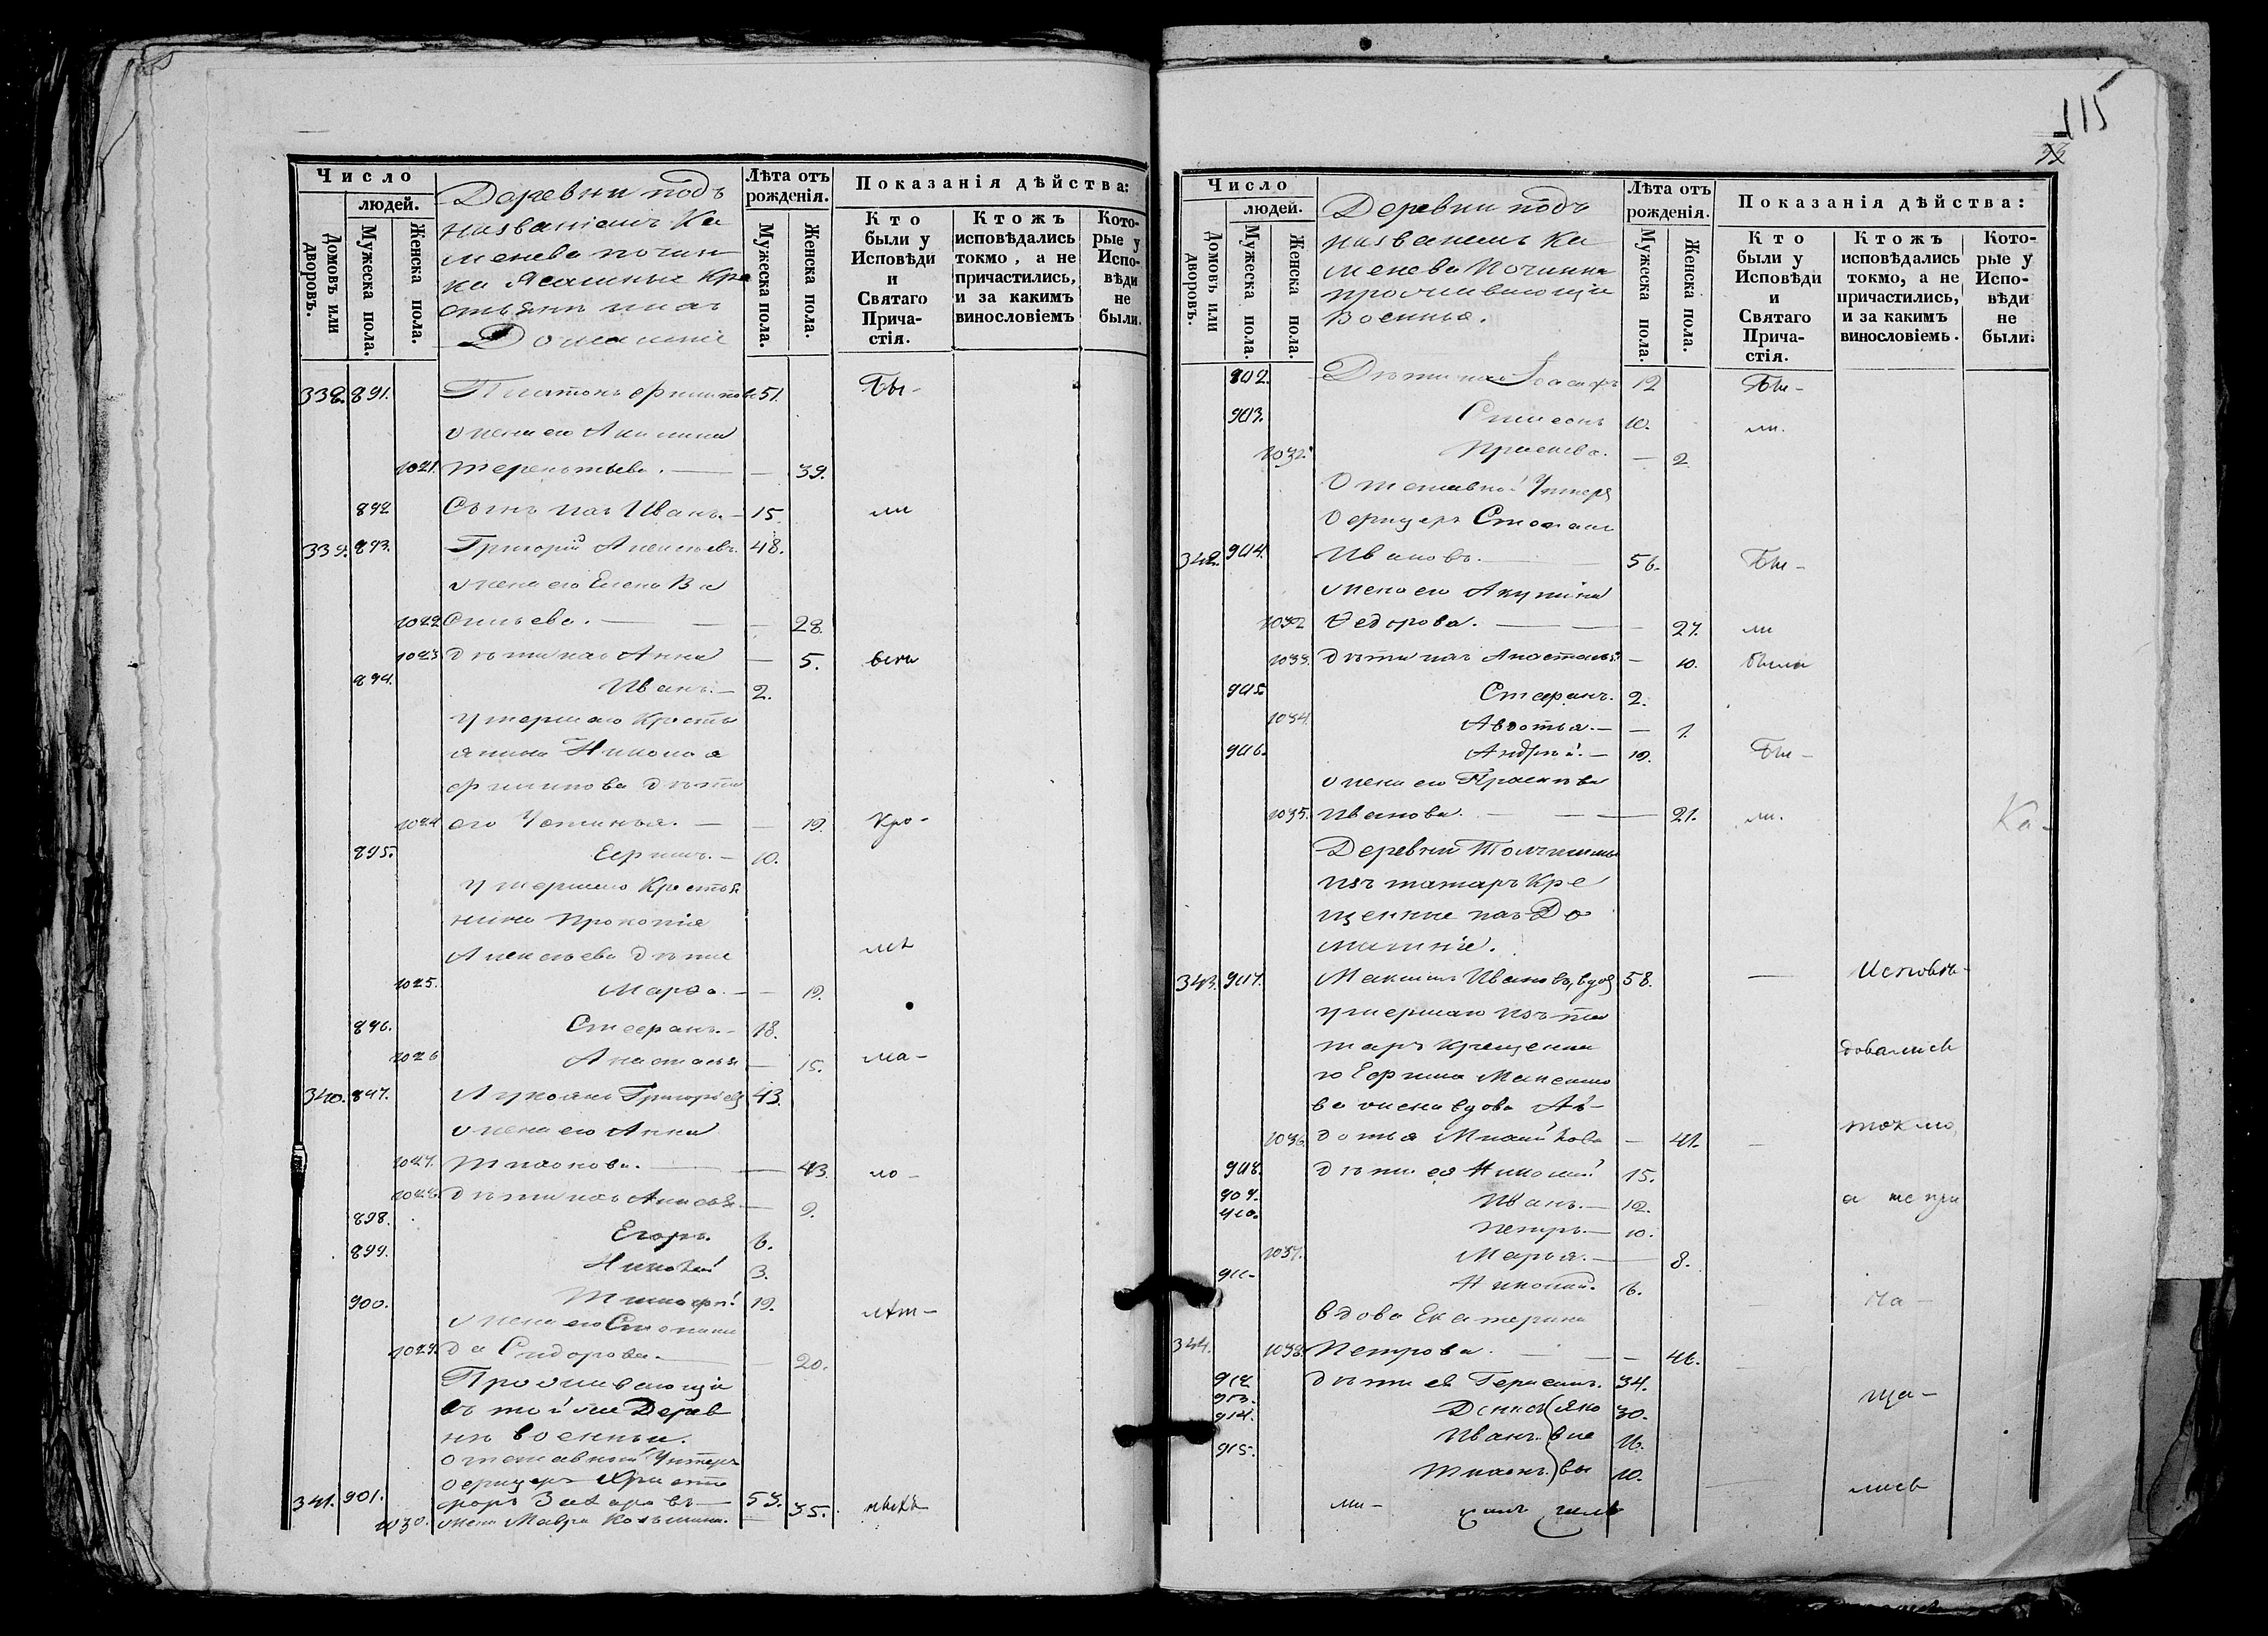 Число
людей.
Домовъ или дворовъ.
Мужеска пола.
Женска пола.
Деревни подъ
названіемъ Ка
менева почин
ка Ясашные Кре
стьяне ихъ
Домашніе
Лѣта отъ рожденія.
Мужеска пола.
Женска пола.
Показанія дѣйства:
Кто были у Исповѣди и Святаго Прича-стія.
Ктожъ исповѣдались токмо, а не причастились, и за какимъ винословіемъ
Кото-рые у Испо-вѣди не были.
338. 891. Платонъ Филипповъ 51. Бы-
жена его Акилина
1021. Терентьева. — — 39.
892 Сынъ ихъ Иванъ. — 15. ли
339. 893. Григорій Алексѣевъ. 48.
жена его Елена Ва
1022 сильева. — — 28.
1023 дѣти ихъ Анна — 5. всѣ
894. Иванъ. — 2.
умершаго Кресть
янина Николая
Филипова дѣти
1024 его Устинья. — — 19. Кро-
895. Ефимъ. — 10.
умершаго Крестья
нина Прокопія
Алексѣева дѣти мѣ
1025. Марѳа. — — 19.
896. Стефанъ. — 18.
1026 Анастасья — 15. ма-
340. 897. Лукоянъ Григорьевъ 43.
жена его Анна
1027. Тихонова. — — 43. ло-
1028. дѣти ихъ Анисья — 9.
898. Егоръ. 6.
899. Николай 3.
900. Тимофѣй 19. лѣт-
жена его Степани
1029. да Сидорова. — — 20.
Проживающіе
въ той же Дерев
нѣ военные.
отставный Унтеръ
офицеръ Христо
341. 901. форъ Захаровъ — 53. нихъ
1030. жена Мавра Козьмина. — 35.
115
Число
людей.
Домовъ или дворовъ.
Мужеска пола.
Женска пола.
Деревни подъ
названіемъ Ка
менева Починка
проживающіе
Военные.
Лѣта отъ рожденія.
Мужеска пола.
Женска пола.
Показанія дѣйства:
Кто были у Исповѣди и Святаго Прича-стія.
Ктожъ исповѣдались токмо, а не причастились, и за какимъ винословіемъ.
Кото-рые у Испо-вѣди не были.
902. Дѣти ихъ Іоасафъ 12 Бы-
903. Симеонъ 10. ли.
Парасковья. — 2
Отставной Унтеръ
Офицеръ Степанъ
342. 904. Ивановъ. — 56. Бы-
жена его Акулина
1032 Ѳедорова. — — 27. ли
1033. дѣти ихъ Анастасья — 10. были
905. Стефанъ. 2.
1034 Авдотья. — — 1.
906. Андрѣй. — 19. Бы-
жена его Прасковья
1035. Иванова. — — 21. ли.
Ка-
Деревни
изъ татаръ Кре
щенные ихъ До
машніе.
343. 907. Максимъ Ивановъ, вдов 58. — Исповѣ-
умершаго изъ та
таръ крещенна
го Ефима Максимо
ва жена вдова Ав- довались
1036. дотья Михайлова — 41. — токмо,
908. дѣти ея Николай 15.
909. Иванъ. — 12. а не при
910. Петръ — 10.
1037. Марья. — 8.
911. Николай. 6.
вдова Екатерина ча-
344. 1038. Петрова. — — 46.
912 дѣти ея Герасимъ. 34.
913. Денисъ Яко 30. ща-
914. Иванъ. вле 16.
915. Тихонъ. вы 10.
лись